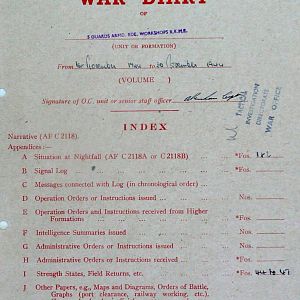 WAR DIARY
OF
5 GUARDS ARMD. BDE. WORKSHOPS R.E.M.E.
(UNIT OR FORMATION)
From 1st November 1944 to 30 November 1944
(VOLUME )
Signature of O.C. unit or senior staff officer
TACTICAL
INVESTIGATION
DIRECTORATE
WAR OFFICE
INDEX
Narrative (AF C 2118).
Appendices:—
A Situation at Nightfall (AF C 2118A or C 2118B) *Fos. 1&2
B Signal Log *Fos.
C Messages connected with Log (in chronological order)
D Operation Orders or Instructions issued Nos.
E Operation Orders and Instructions received from Higher
Formations *Fos.
F Intelligence Summaries issued Nos.
G Administrative Orders or Instructions issued Nos.
H Administrative Orders or Instructions received *Fos.
I Strength States, Field Returns, etc. *Fos. 44 to 47
J Other Papers, e.g., Maps and Diagrams, Orders of Battle,
Graphs (port clearance, railway working, etc.),